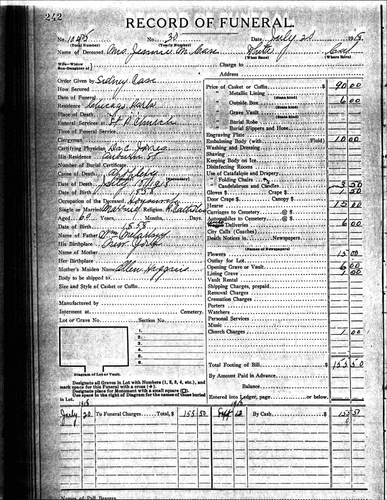 242
RECORD OF FUNERAL.
No. 30 Date July 20 1918
(Total Number) (Yearly Number)
Name of Deceased Mrs. Jeannie M. Case White
(What Race) (Where Born)
Wife—Widow
Son—Daughter of
Charge to
Address
Order Given by Sidney Case
How Secured
Date of Funeral
Residence Chicago
Place of Death
Funeral Services at Church
Time of Funeral Service
Clergyman
Certifying Physician Dr. C. Jones
His Residence
Cause of Death Apoplexy
Date of Death July
Date of Birth
Occupation of the Deceased
Single or Married Married Religion
Aged 60 Years Months, Days.
Date of Birth 1858
Name of Father Wm.
His Birthplace New York
Name of Mother
Her Birthplace
Mother's Maiden Name Ellen Higgins
Body to be shipped to
Size and Style of Casket or Coffin
Manufactured by
Interment at Cemetery.
Lot or Grave No. Section No.
1.
2.
3.
4.
5.
Diagram of Lot or Vault.
Designate all Graves in Lot with Numbers (1, 2, 3, 4, etc.), and
mark space for this Funeral with a cross (+).
Designate place for Monument with a small square (□).
Use space to the right of Diagram for the names of those buried
in Lot.
Price of Casket or Coffin $ 90 00
Metallic Lining
(State Kind)
Outside Box 6 00
(State Kind)
Grave Vault
(State Kind)
Burial Robe
(State Kind)
Burial Slippers and Hose
Engraving Plate
Embalming Body (with Fluid) 10 00
Washing and Dressing
Shaving
Keeping Body on Ice
Disinfecting Rooms
Use of Catafalque and Drapery
Folding Chairs
Candelabrum and Candles 3 50
Gloves $ Crape $ 1 50
Door Crape Canopy
Hearse 15 00
Carriages to Cemetery @ $
Automobiles to Cemetery @ $
Deliveries 6 00
City Calls (Coaches)
Death Notices in Newspapers
(Names of Newspapers)
Flowers 15 00
Outlay for Lot
Opening Grave or Vault 6 00
Lining Grave 1 00
Vault Rental
Shipping Charges, prepaid
Removal Charges
Cremation Charges
Porters
Watchers
Personal Services
Music
Church Charges 1 00
Total Footing of Bill $ 155 50
By Amount Paid in Advance
Balance
Entered into Ledger, page or below.
1918
July 20 To Funeral Charges, Total, $ 155 50 Sept 12 By Cash $ 155 50
Names of Pall Bearers